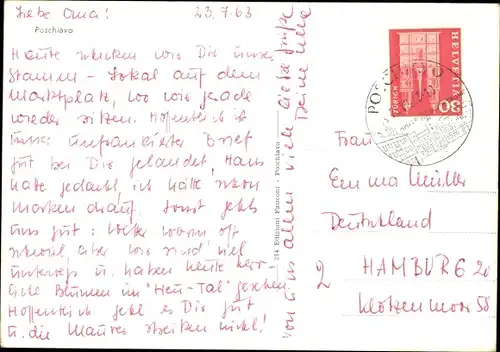 Liebe Oma! 23.7.63
Poschiavo
Heute schicken wir Dir unser
Stamm-Lokal auf dem
Marktplatz, wo wir gerade
wieder sitzen. Hoffentlich ist
unser unfrankierter Brief
gut bei Dir gelandet, Hans
hatte gedacht, ich hätte schon
Marken drauf. Sonst geht's
uns gut: Wetter warm oft
schwül, aber wir sind viel
unterwegs u. haben heute herr-
liche Blumen im "Heu-Tal" gesehen.
Hoffentlich geht es Dir gut
u. die Maurer streiken nicht!
von uns allen viele liebe Grüße
Deine
254 Edizioni Fanconi - Poschiavo
HELVETIA
ZÜRICH
30
POSCHIAVO
Frau
Emma Müller
Deutschland
2 HAMBURG 20
Klotzenmoor 58